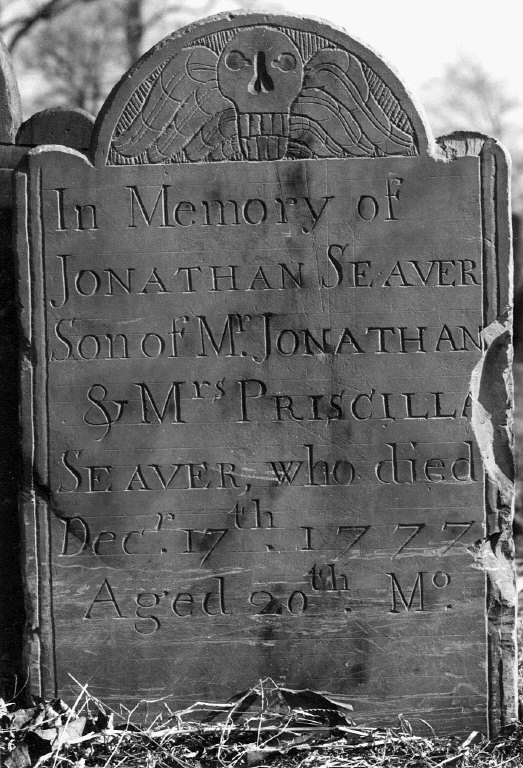 In Memory of
JONATHAN SEAVER
Son of Mr. JONATHAN
& Mrs PRISCILLA
SEAVER, who died
Decr. 17th. 1777
Aged 20th. Mo.